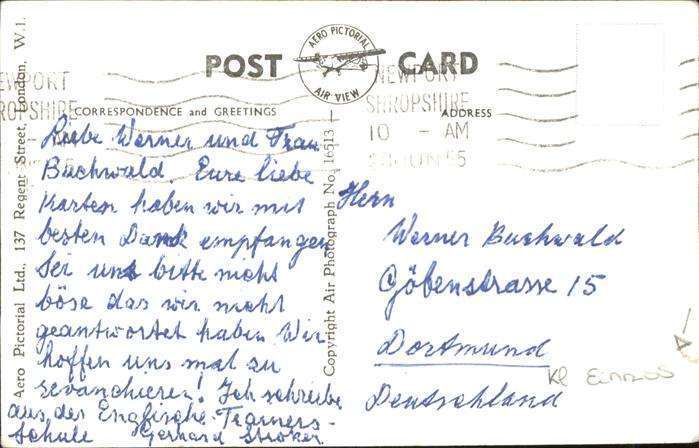 POST CARD
AERO PICTORIAL
AIR VIEW
NEWPORT
SHROPSHIRE
10 - AM
JUN 55
CORRESPONDENCE and GREETINGS
ADDRESS
Aero Pictorial Ltd., 137 Regent Street, London, W.1.
Copyright Air Photograph No. 16513
Liebe Werner und Frau
Buchwald. Eure liebe
Karten haben wir mit
besten Dank empfangen
Sei uns bitte nicht
böse das wir nicht
geantwortet haben Wir
hoffen uns mal zu
revanchieren! Ich schreibe
aus der Englische-Trainers-
Schule Gerhard
Herrn
Werner Buchwald
Göbenstrasse 15
Dortmund
Deutschland
Kl